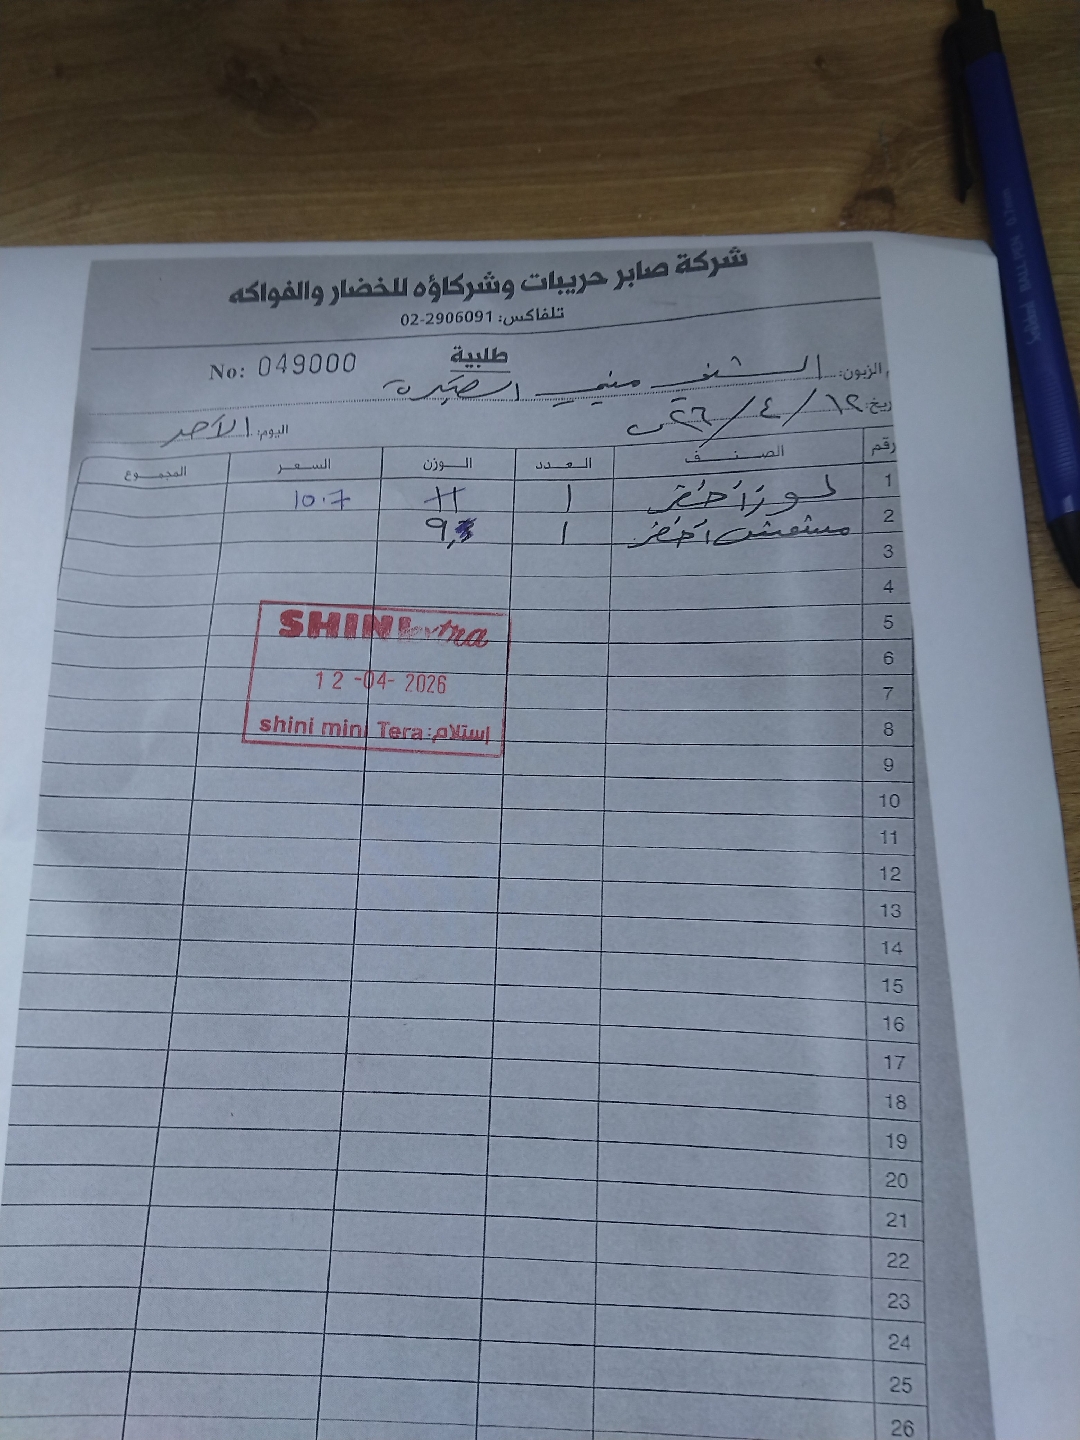 شركة صابر حريبات وشركاؤه للخضار والفواكه
تلفاكس: 02-2906091
طلبية No: 049000
الزبون: الشني ميني الصغيرة
ريخ: ١٢ / ٤ / ٢٦
اليوم: الأحد
رقم الصنف العدد الوزن السعر المجموع
1 لوز أخضر 1 11 10.7
2 مشمش أخضر 1 9,3
3
4
5
6
7
8
9
10
11
12
13
14
15
16
17
18
19
20
21
22
23
24
25
26
SHINI extra
12-04-2026
shini mini Tera: إستلام
BALLPEN 0.7mm